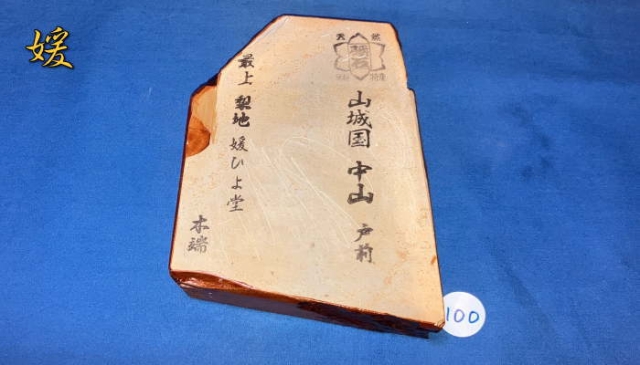 媛
天然
砥石
山城国 中山 戸前
最上 梨地 媛ひよ堂
木端
100